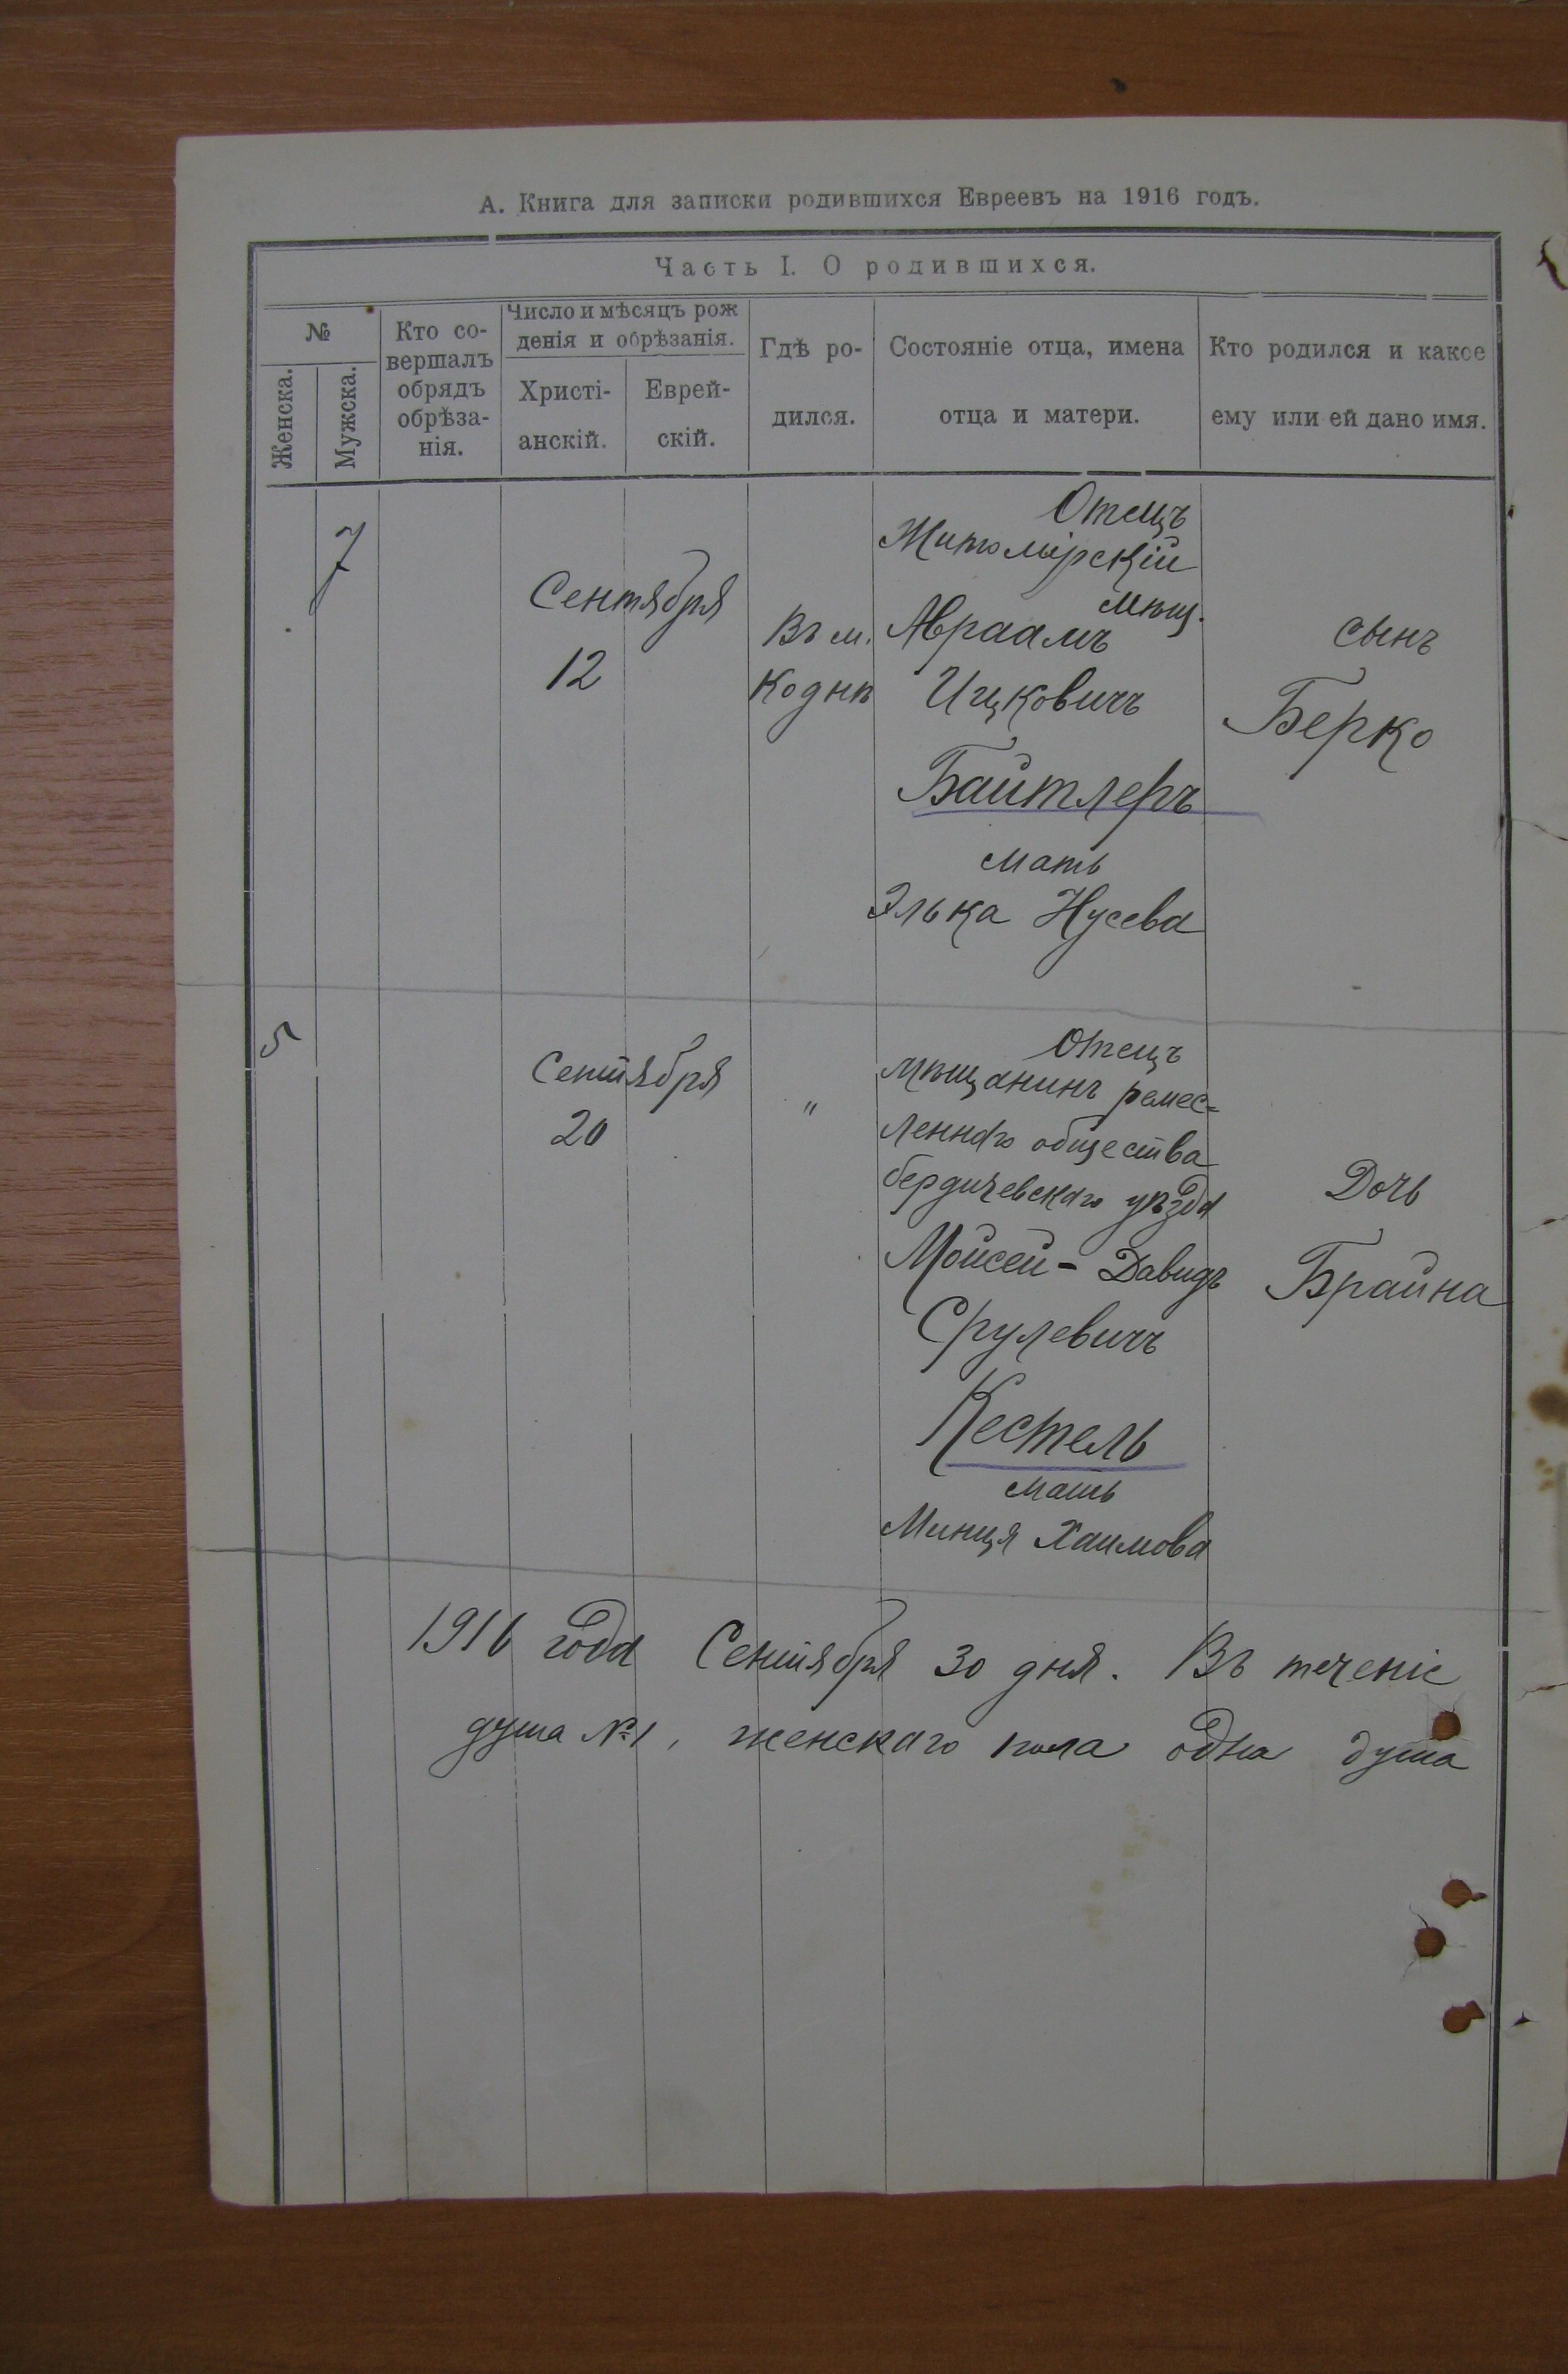 А. Книга для записки родившихся Евреевъ на 1916 годъ.
Часть I. О родившихся.
№
Женска.
Мужска.
Кто со-
вершалъ
обрядъ
обрѣза-
нія.
Число и мѣсяцъ рож
денія и обрѣзанія.
Христі-
анскій.
Еврей-
скій.
Гдѣ ро-
дился.
Состояніе отца, имена
отца и матери.
Кто родился и какое
ему или ей дано имя.
7
Сентября
12
Въ м.
Коднѣ
Отецъ
Житомірскій
мѣщ.
Авраамъ
Ицковичъ
Байтлеръ
мать
Элька Нусева
сынъ
Берко
5
Сентября
20
"
Отецъ
мѣщанинъ ремес=
леннаго общества
бердичевскаго уѣзда
Мойсей - Давидъ
Срулевичъ
Кестель
мать
Минця Хаимова
Дочь
Брайна
1916 года Сентября 30 дня. Въ теченіе
душа №1, женскаго пола одна душа